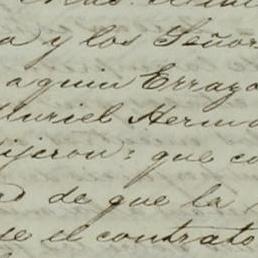 a y los Señor
aquin Errazu
Muriel Herma
dijeron: que co
de que la
se el contrato